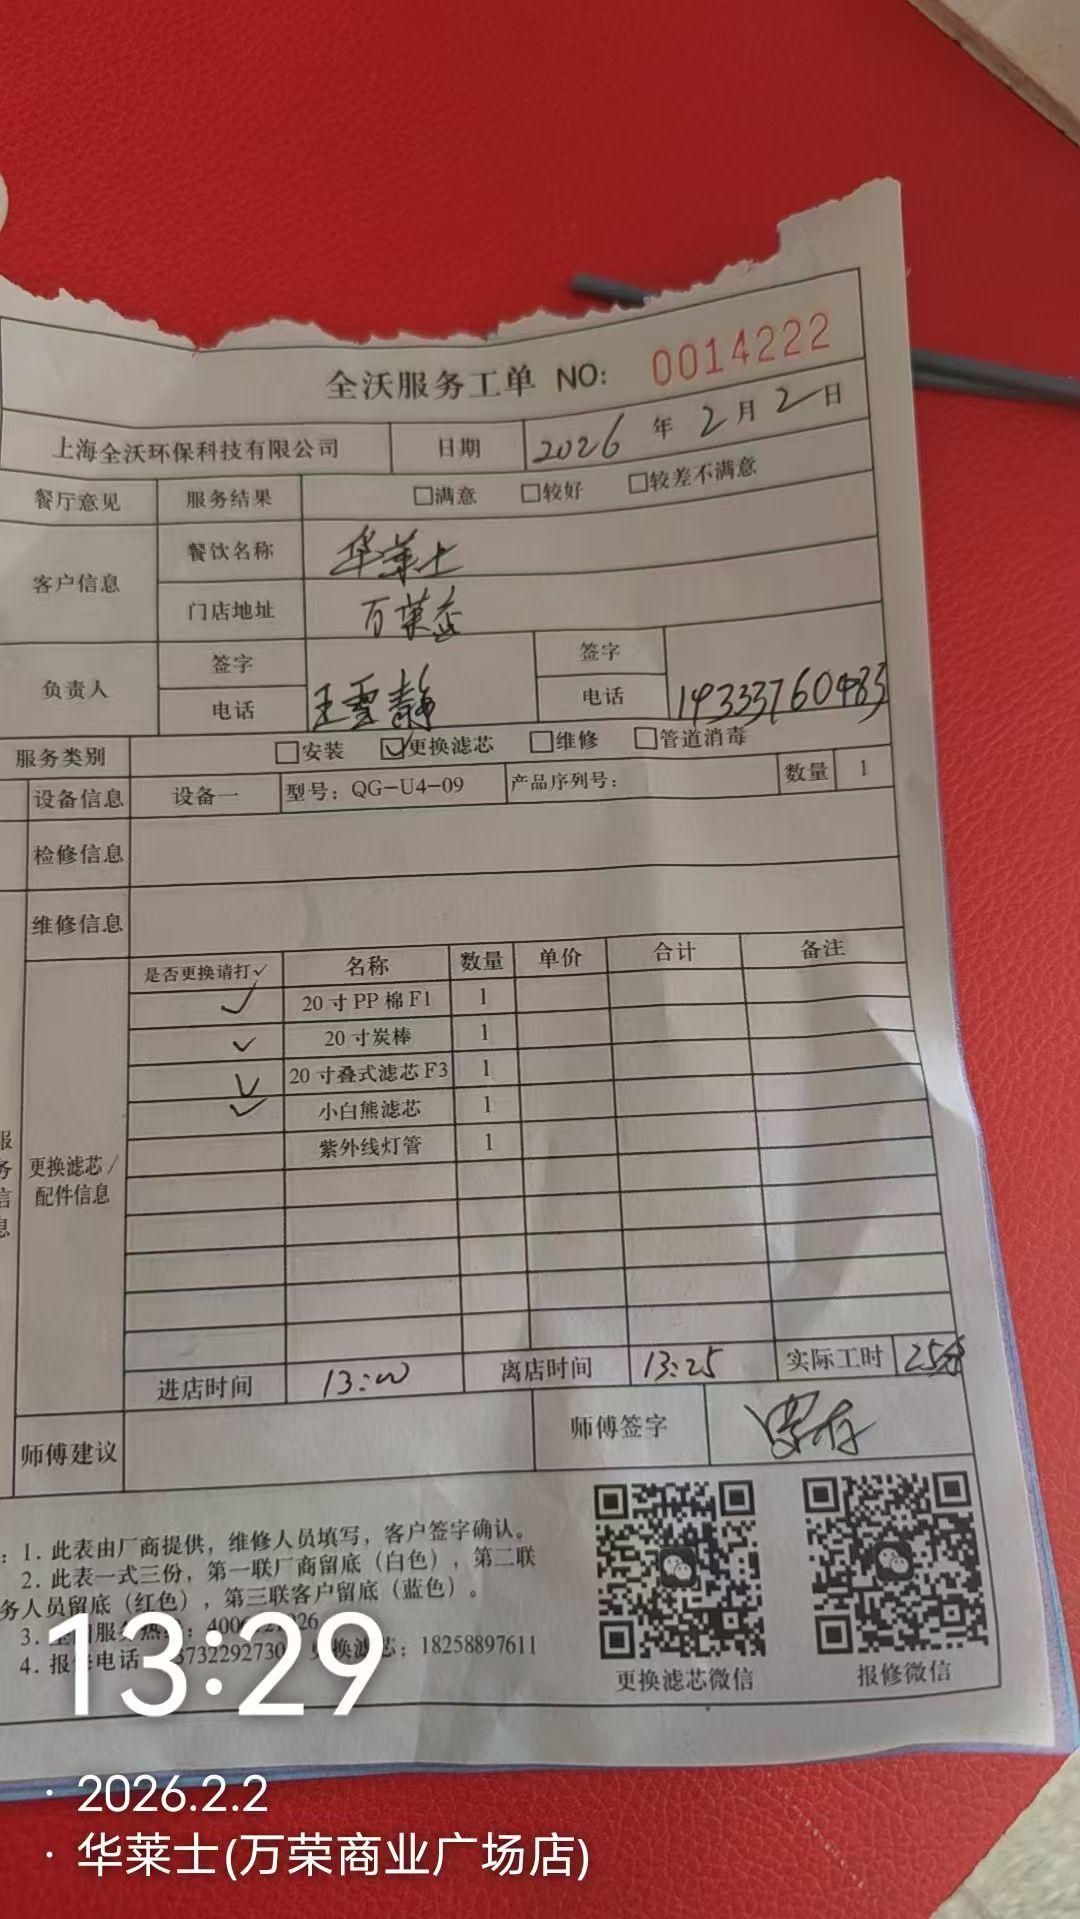 全沃服务工单 NO: 0014222
上海全沃环保科技有限公司 日期 2026年2月2日
餐厅意见 服务结果 □满意 □较好 □较差不满意
客户信息 餐饮名称 华莱士
门店地址 万荣店
负责人 签字 王雪静 签字
电话 电话 19333760483
服务类别 □安装 ☑更换滤芯 □维修 □管道消毒
设备信息 设备一 型号: QG-U4-09 产品序列号: 数量 1
检修信息
维修信息
是否更换请打✓ 名称 数量 单价 合计 备注
✓ 20寸PP棉F1 1
✓ 20寸炭棒 1
✓ 20寸叠式滤芯F3 1
✓ 小白熊滤芯 1
紫外线灯管 1
服务信息
更换滤芯/
配件信息
进店时间 13:00 离店时间 13:25 实际工时 25分
师傅建议 师傅签字
: 1. 此表由厂商提供，维修人员填写，客户签字确认。
2. 此表一式三份，第一联厂商留底（白色），第二联
务人员留底（红色），第三联客户留底（蓝色）。
3.
4. 报 电话 3732292730 更换滤芯: 18258897611
更换滤芯微信 报修微信
13:29
· 2026.2.2
· 华莱士(万荣商业广场店)